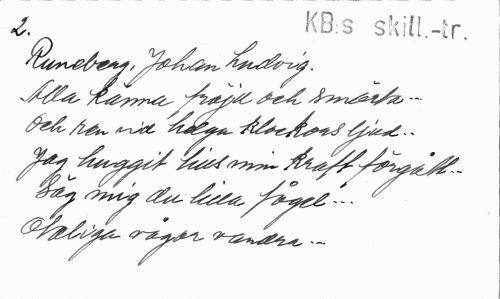 2.
KB:s skill.-tr.
Runeberg, Johan Ludvig.
Alla känna fröjd och smärta...
Och ren vid helga klockors ljud...
Jag huggit tills min kraft förgått...
Säg mig du lilla fågel...
Otaliga vågor vandra...